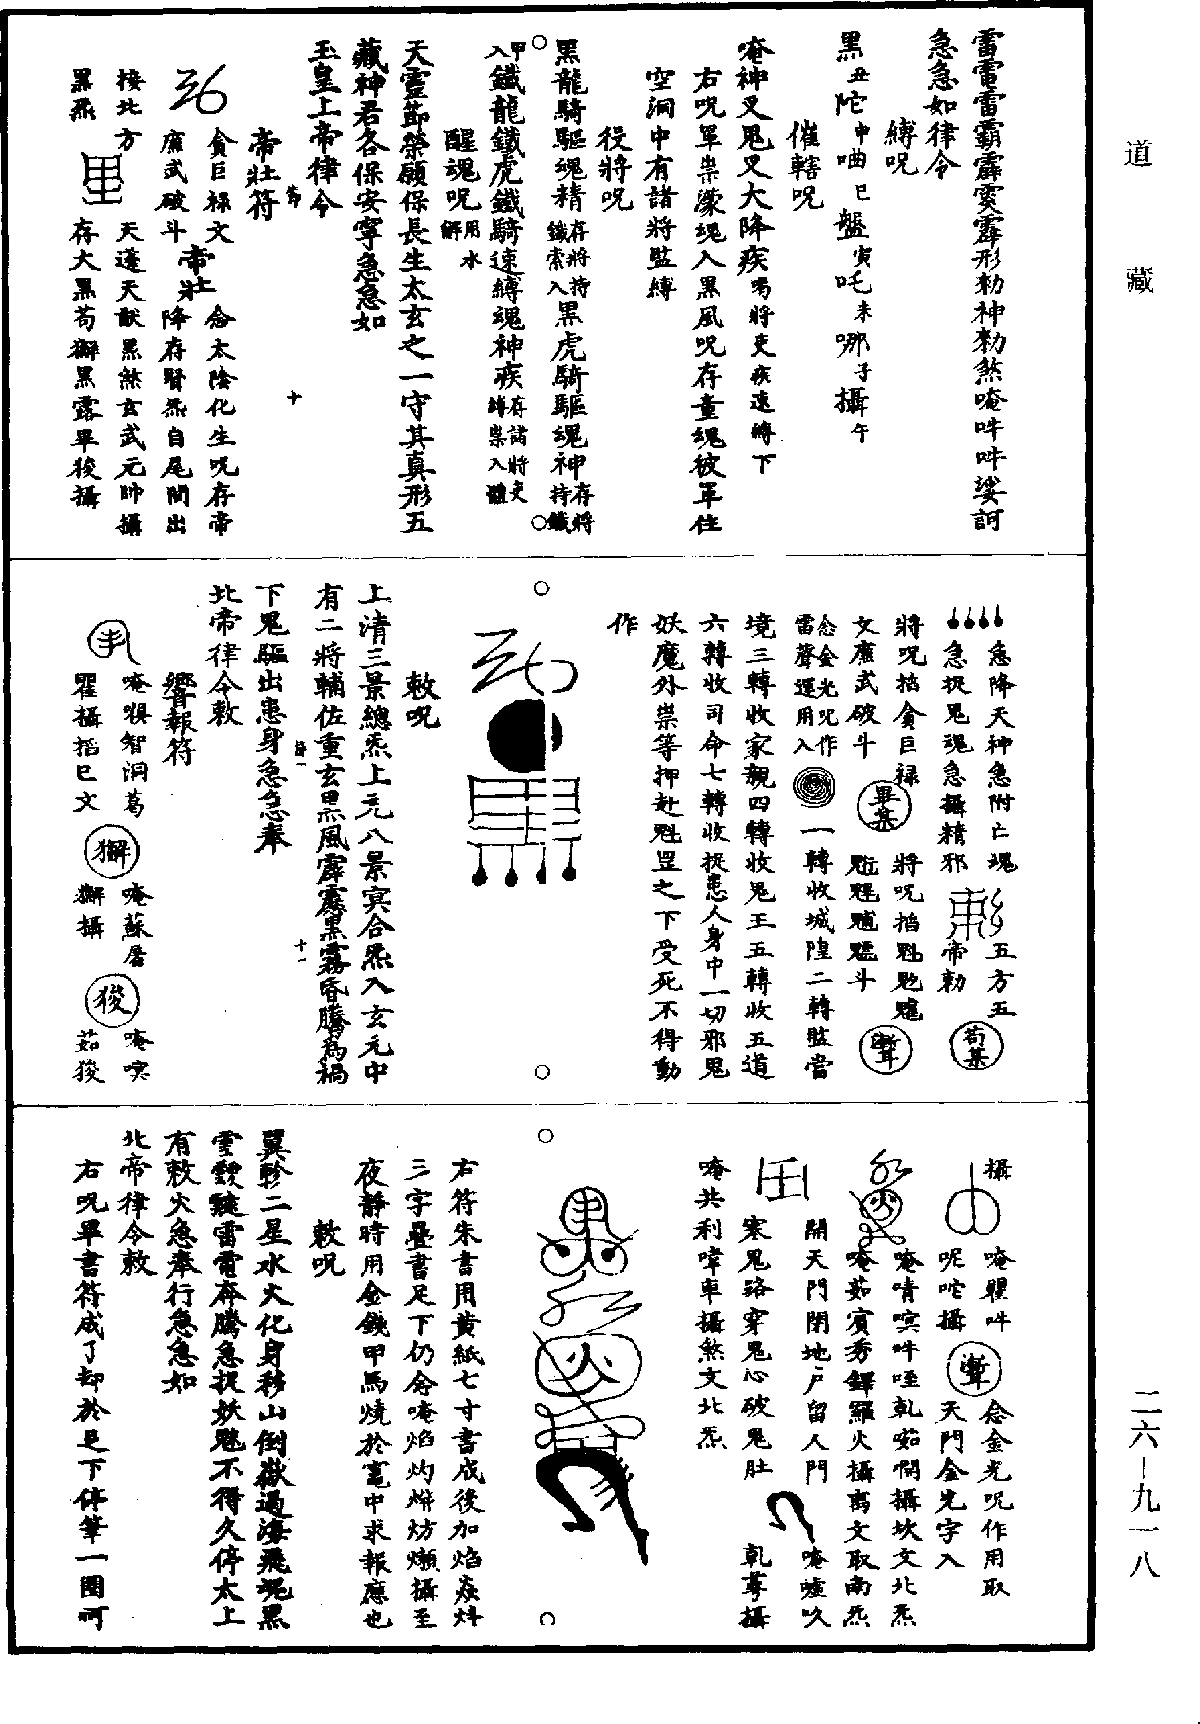 道藏
急急如律令
縛呪
黑丑陀申㘄巳盤寅吒未哪子攝午
催轄呪
唵神叉鬼叉大降疾喝將吏疾速縛下
右呪罩祟濛魂入黑風呪存童魂被罩住
空洞中有諸將監縛
役將呪
黑龍騎驅魂精存將持鐵索入黑虎騎驅魂神存將持鐵
甲入鐵龍鐵虎鐵騎速縛魂神疾存諸將吏縛祟入體
醒魂呪用水解
天靈節榮願保長生太玄之一守其真形五
藏神君各保安寧急急如
玉皇上帝律令
帝壯符
十
貪巨祿文帝壯念太陰化生呪存帝
廉武破斗降存腎炁自尾閭出
接北方天蓬天猷黑煞玄武元帥攝
黑炁存大黑苟獬黑露畢狻攝
急降天神急附亡魂五方五
急捉鬼魂急攝精邪帝勅
將呪掐貪巨祿將呪掐魁
文廉武破斗畢某斗
念金光呪作雷聲運用入一轉收城隍二轉監當
境三轉收家親四轉收鬼王五轉收五道
六轉收司命七轉收捉患人身中一切邪鬼
妖魔外祟等押赴魁罡之下受死不得動
作
敕呪
上清三景總炁上元八景冥合炁入玄元中
有二將輔佐重玄黑風霹靂黑霧昏騰為禍
下鬼驅出患身急急奉
北帝律令敕
十一
響報符
唵㗋智洞葛獬唵蘇唇狻唵㖼
瞿攝掐巳文獬攝茹狻
攝唵瞿吽念金光呪作用取
呢咜攝天門金光字入
唵啨㖼吽咥乹攝坎文北炁
唵茹賓秀鐸羅火攝离文取南炁
開天門閉地戶留人門唵嘘㕮
塞鬼路穿鬼心破鬼肚乹䓬攝
唵共利㖏車攝煞文北炁
右符朱書用黃紙七寸書成後加焰焱炓
三字疊書足下仍念唵焰灼炐炊攝至
夜靜時用金錢甲馬燒於竈中求報應也
敕呪
翼軫二星水火化身移山倒嶽過海飛魂黑
雲靉靆雷電奔騰急捉妖魅不得久停太上
有敕火急奉行急急如
北帝律令敕
右呪畢書符成了却於足下停筆一圈呵
二六—九一八